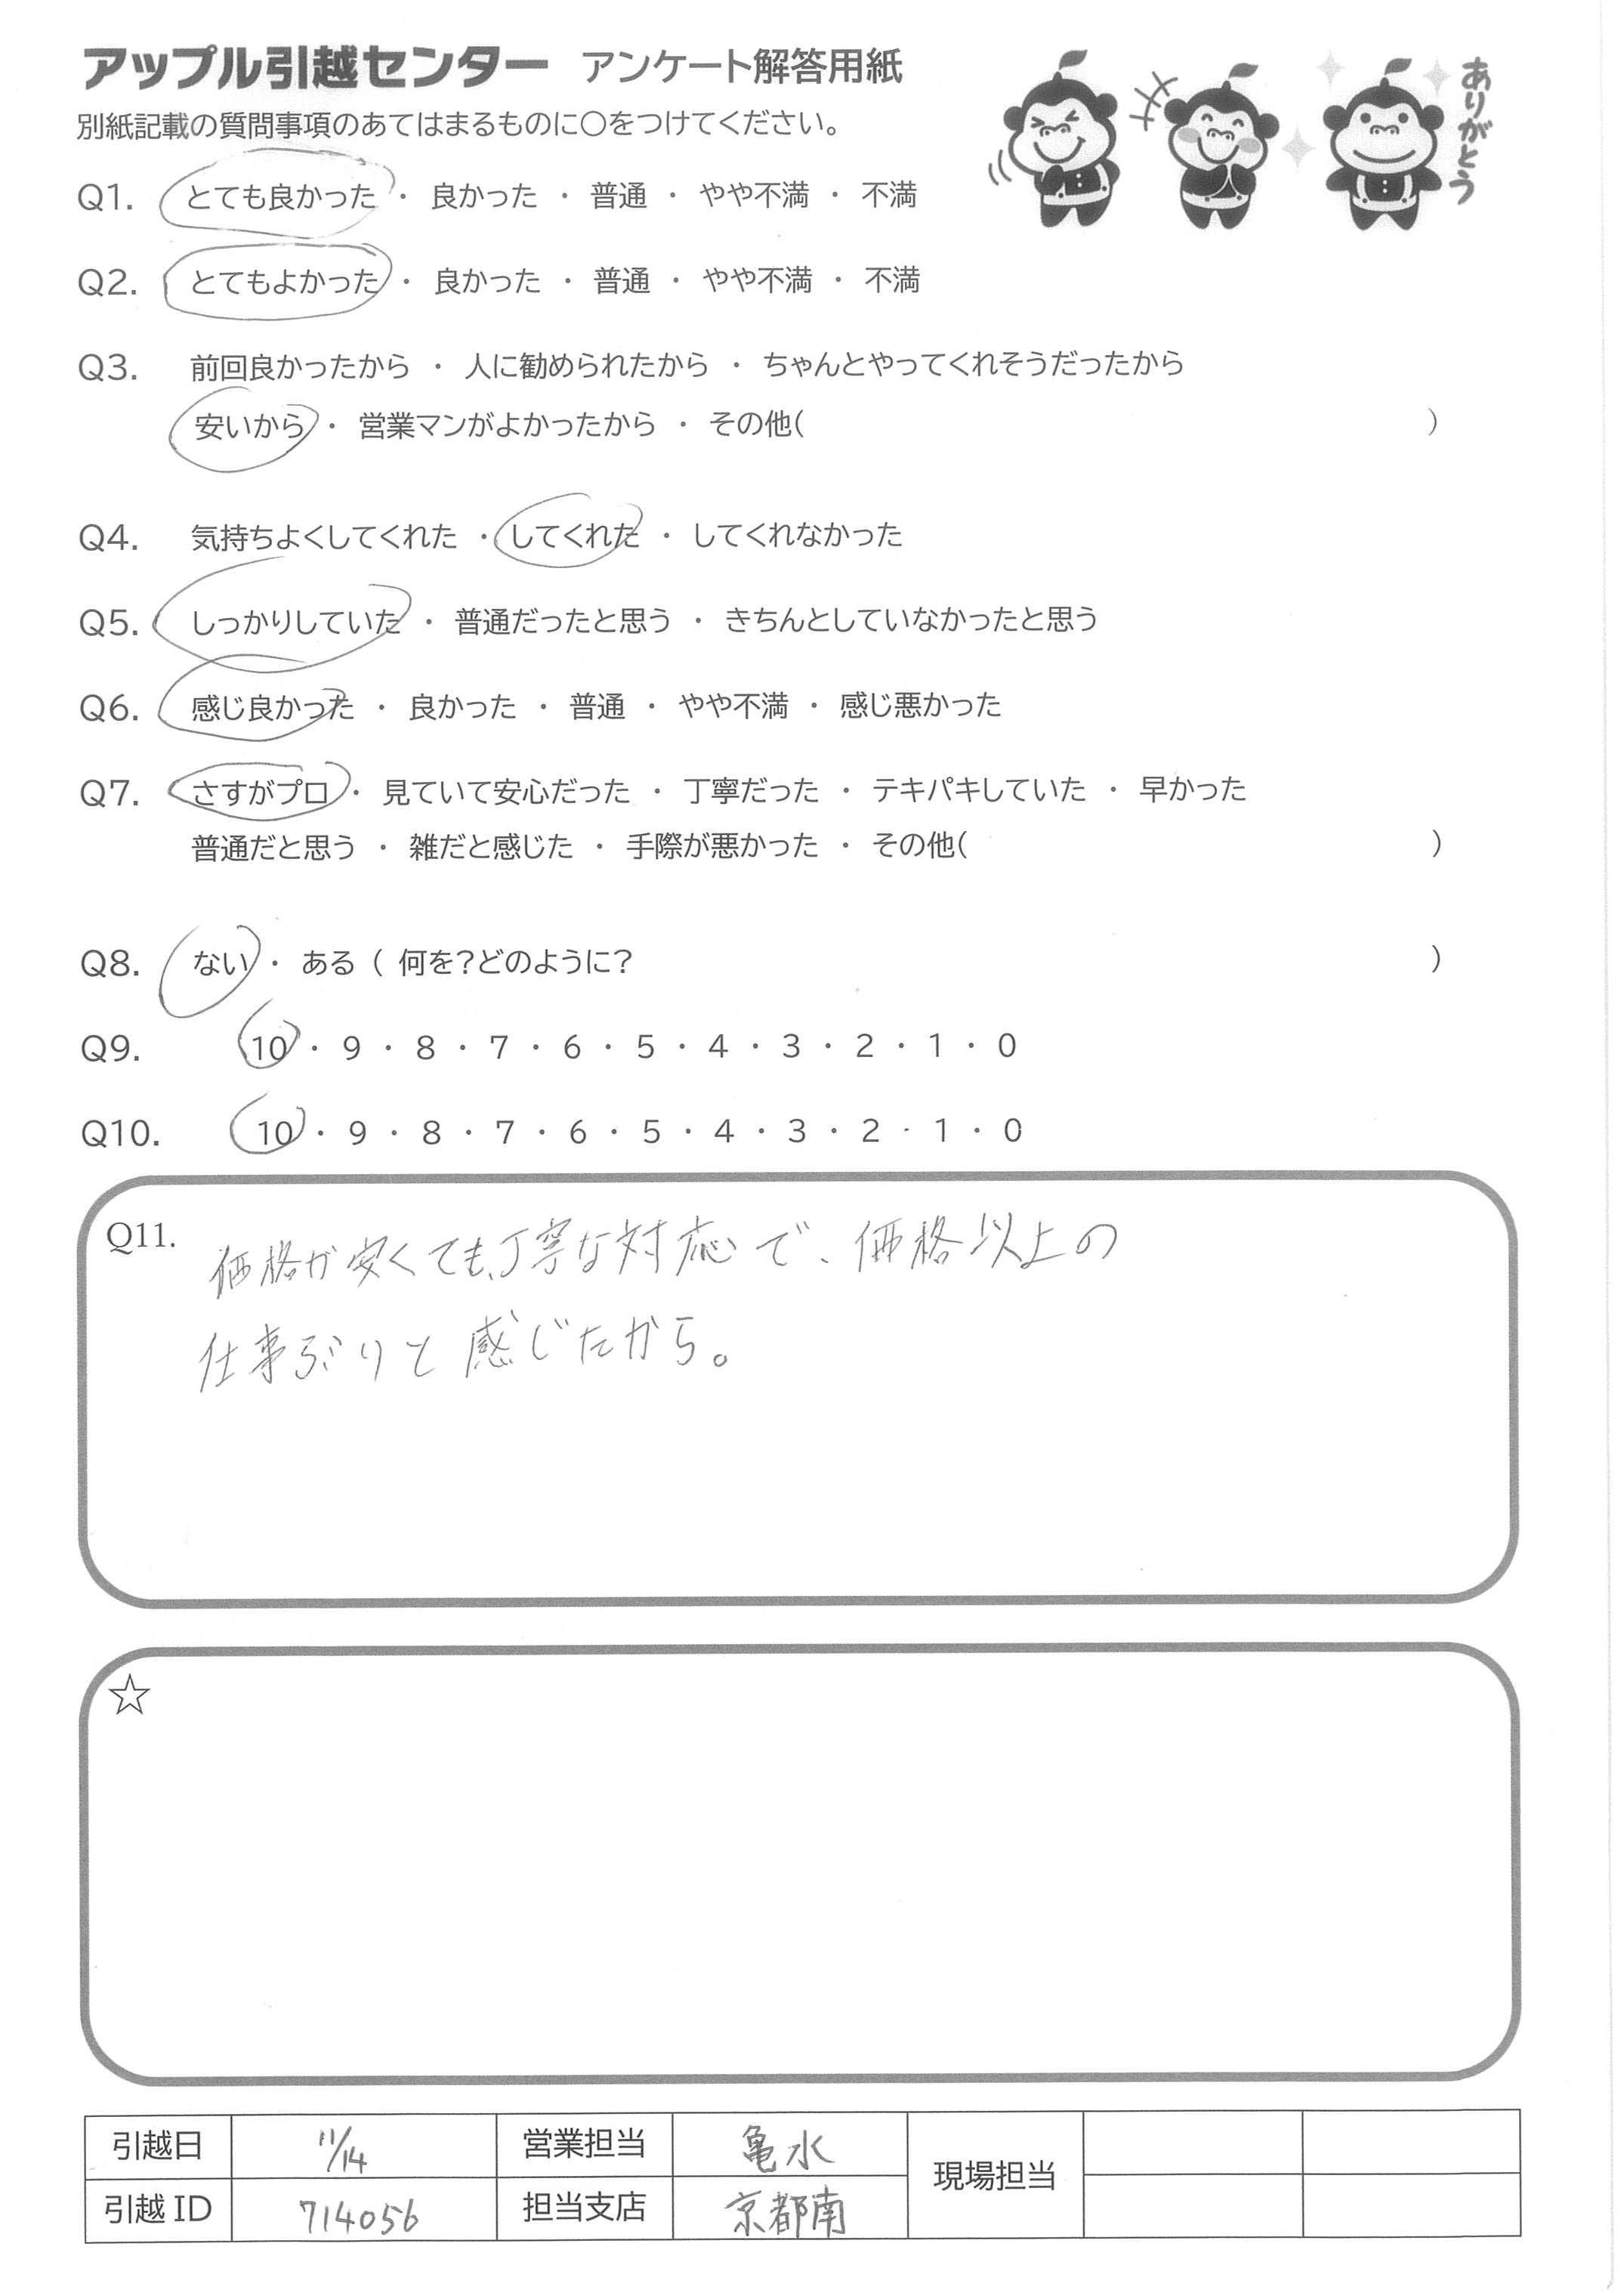 アップル引越センター アンケート解答用紙
別紙記載の質問事項のあてはまるものに○をつけてください。
ありがとう
Q1. とても良かった ・ 良かった ・ 普通 ・ やや不満 ・ 不満
Q2. とてもよかった ・ 良かった ・ 普通 ・ やや不満 ・ 不満
Q3. 前回良かったから ・ 人に勧められたから ・ ちゃんとやってくれそうだったから
安いから ・ 営業マンがよかったから ・ その他( )
Q4. 気持ちよくしてくれた ・ してくれた ・ してくれなかった
Q5. しっかりしていた ・ 普通だったと思う ・ きちんとしていなかったと思う
Q6. 感じ良かった ・ 良かった ・ 普通 ・ やや不満 ・ 感じ悪かった
Q7. さすがプロ ・ 見ていて安心だった ・ 丁寧だった ・ テキパキしていた ・ 早かった
普通だと思う ・ 雑だと感じた ・ 手際が悪かった ・ その他( )
Q8. ない ・ ある ( 何を?どのように? )
Q9. 10 ・ 9 ・ 8 ・ 7 ・ 6 ・ 5 ・ 4 ・ 3 ・ 2 ・ 1 ・ 0
Q10. 10 ・ 9 ・ 8 ・ 7 ・ 6 ・ 5 ・ 4 ・ 3 ・ 2 ・ 1 ・ 0
Q11. 価格が安くても、丁寧な対応で、価格以上の
仕事ぶりと感じたから。
☆
引越日 11/14 営業担当 亀水 現場担当
引越ID 714056 担当支店 京都南